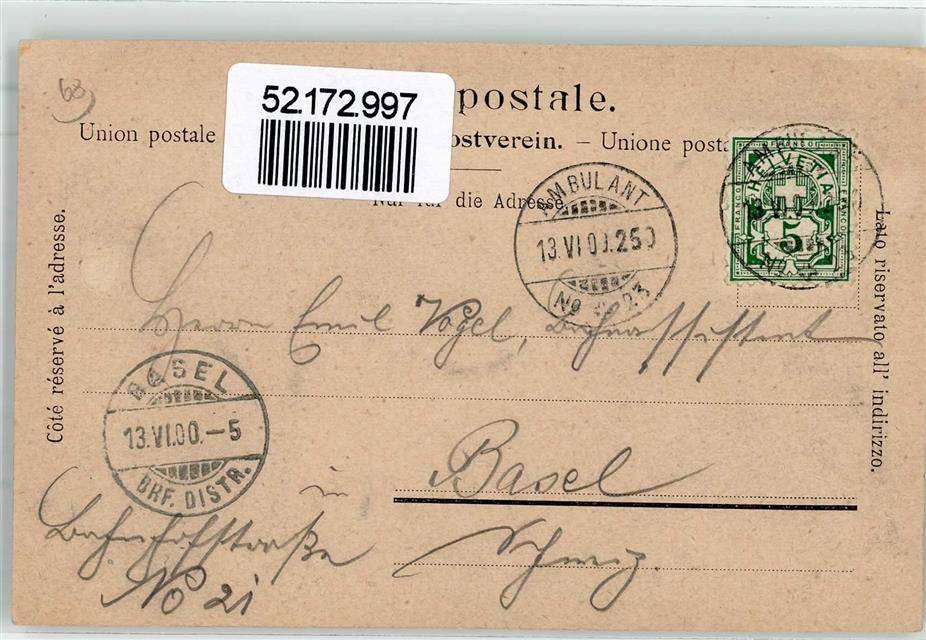 63
52.172.997
postale.
Union postale ostverein. – Unione posta
Nur für die Adresse.
AMBULANT
13.VI.00.250
No 23
FRANCO
HELVETIA
FRANCO
5
Côté réservé à l'adresse.
Lato riservato all' indirizzo.
Herrn Emil Vogel, Bahnassistent
BASEL
13.VI.00.–5
BRF. DISTR.
in Basel
Bahnhofstraße Schweiz.
No 21